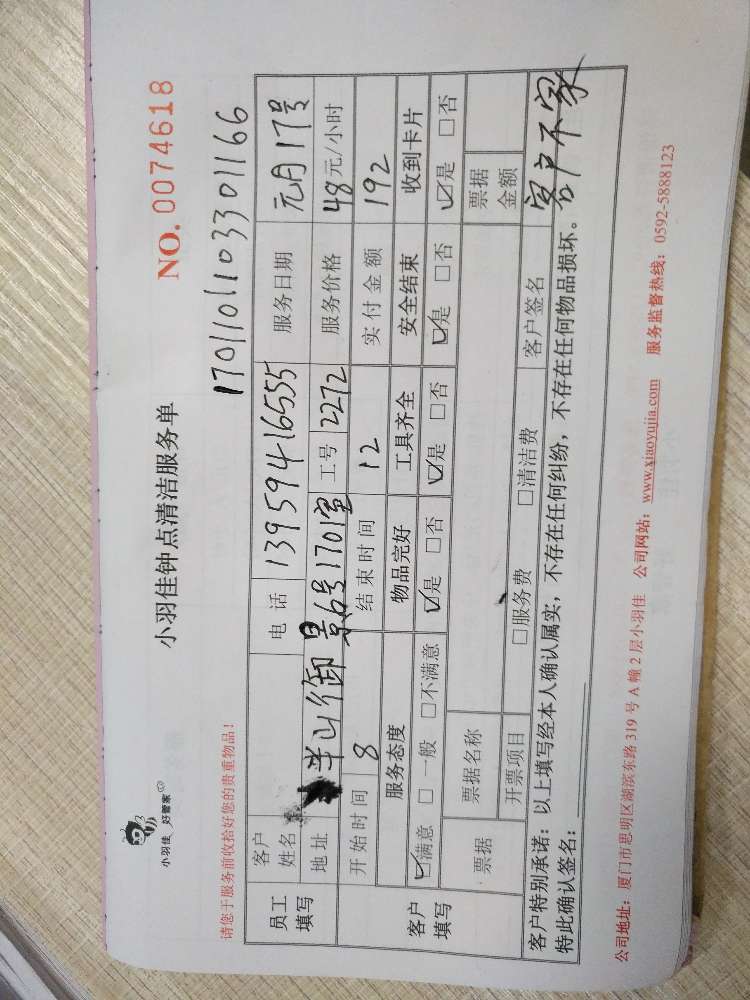 小羽佳 好管家
小羽佳钟点清洁服务单
NO. 0074618
请您于服务前收拾好您的贵重物品!
1701101103301166
员工填写 客户姓名 电话 13959416555 服务日期 元月17号
地址 半山御景6号1701室 工号 2272 服务价格 48元/小时
开始时间 8 结束时间 12 实付金额 192
客户填写 服务态度 物品完好 工具齐全 安全结束 收到卡片
☑满意 □一般 □不满意 ☑是 □否 ☑是 □否 ☑是 □否 ☑是 □否
票据 票据名称 票据金额
开票项目 □服务费 □清洁费 客户签名 客户不家
客户特别承诺:以上填写经本人确认属实,不存在任何纠纷,不存在任何物品损坏。
特此确认签名:
公司地址:厦门市思明区湖滨东路319号A幢2层小羽佳 公司网站:www.xiaoyujia.com 服务监督热线:0592-5888123